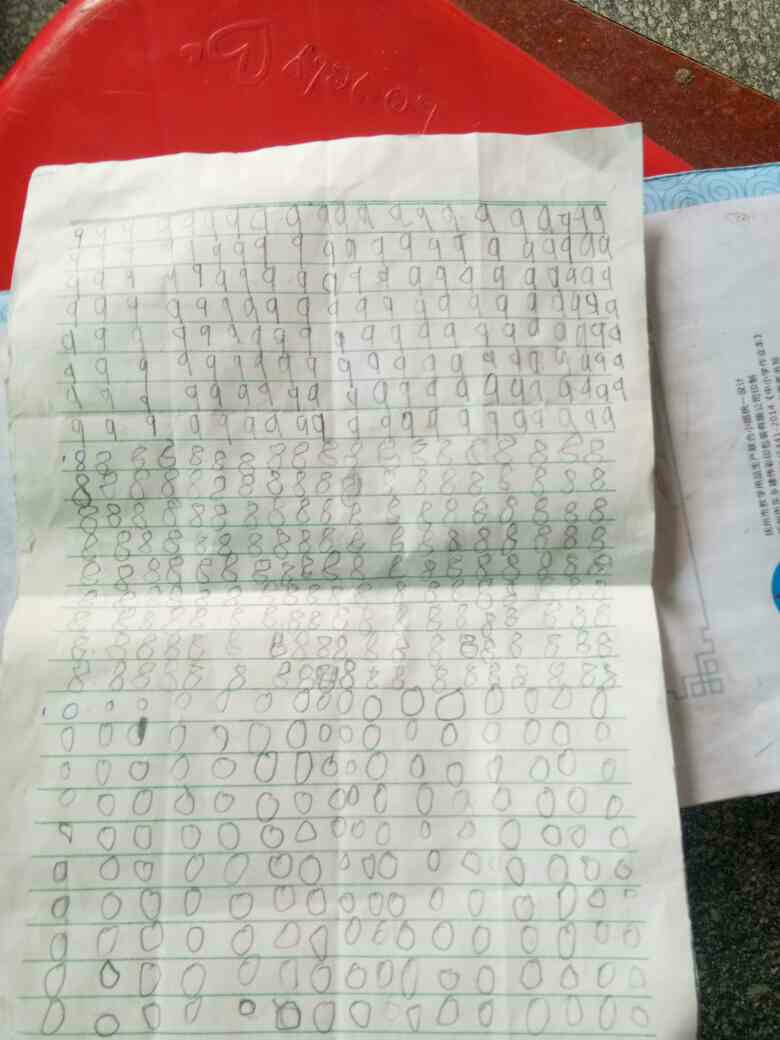 9 9 9 9 9 9 9 9 9 9 9 9 9 9 9 9 9 9 9 9 9
9 9 9 9 9 9 9 9 9 9 9 9 9 9 9 9 9 9 9 9 9
9 9 9 9 9 9 9 9 9 9 9 9 9 9 9 9 9 9 9 9 9
9 9 9 9 9 9 9 9 9 9 9 9 9 9 9 9 9 9 9 9 9
9 9 9 9 9 9 9 9 9 9 9 9 9 9 9 9 9 9 9 9 9
9 9 9 9 9 9 9 9 9 9 9 9 9 9 9 9 9 9 9 9 9
9 9 9 9 9 9 9 9 9 9 9 9 9 9 9 9 9 9 9 9 9
9 9 9 9 9 9 9 9 9 9 9 9 9 9 9 9 9 9 9 9 9
8 8 8 8 8 8 8 8 8 8 8 8 8 8 8 8 8 8 8
8 8 8 8 8 8 8 8 8 8 8 8 8 8 8 8 8 8 8
8 8 8 8 8 8 8 8 8 8 8 8 8 8 8 8 8 8 8
8 8 8 8 8 8 8 8 8 8 8 8 8 8 8 8 8 8 8
8 8 8 8 8 8 8 8 8 8 8 8 8 8 8 8 8 8 8
8 8 8 8 8 8 8 8 8 8 8 8 8 8 8 8 8 8 8
8 8 8 8 8 8 8 8 8 8 8 8 8 8 8 8 8 8 8
8 8 8 8 8 8 8 8 8 8 8 8 8 8 8 8 8 8 8
8 8 8 8 8 8 8 8 8 8 8 8 8 8 8 8 8 8 8
0 0 0 0 0 0 0 0 0 0 0 0 0 0 0 0
0 0 0 0 0 0 0 0 0 0 0 0 0 0 0 0
0 0 0 0 0 0 0 0 0 0 0 0 0 0 0 0
0 0 0 0 0 0 0 0 0 0 0 0 0 0 0 0
0 0 0 0 0 0 0 0 0 0 0 0 0 0 0 0
0 0 0 0 0 0 0 0 0 0 0 0 0 0 0 0
0 0 0 0 0 0 0 0 0 0 0 0 0 0 0 0
0 0 0 0 0 0 0 0 0 0 0 0 0 0 0 0
0 0 0 0 0 0 0 0 0 0 0 0 0 0 0 0
0 0 0 0 0 0 0 0 0 0 0 0 0 0 0 0
市教学用品生产联合小组统一设计
有限公司印制
2014《中小学作业本》